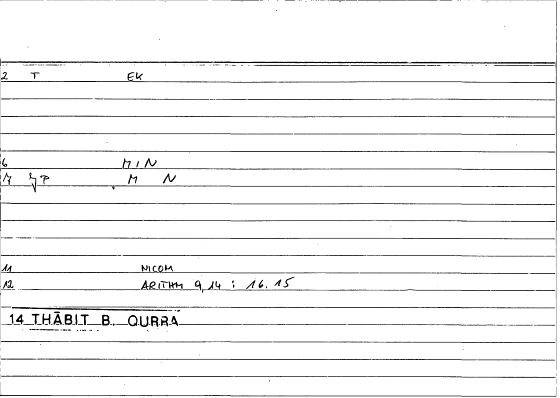 2 T EK
6 MIN
M N
11 NICOM
12 ARITHM 9,14 : 16.15
14 THĀBIT B. QURRA